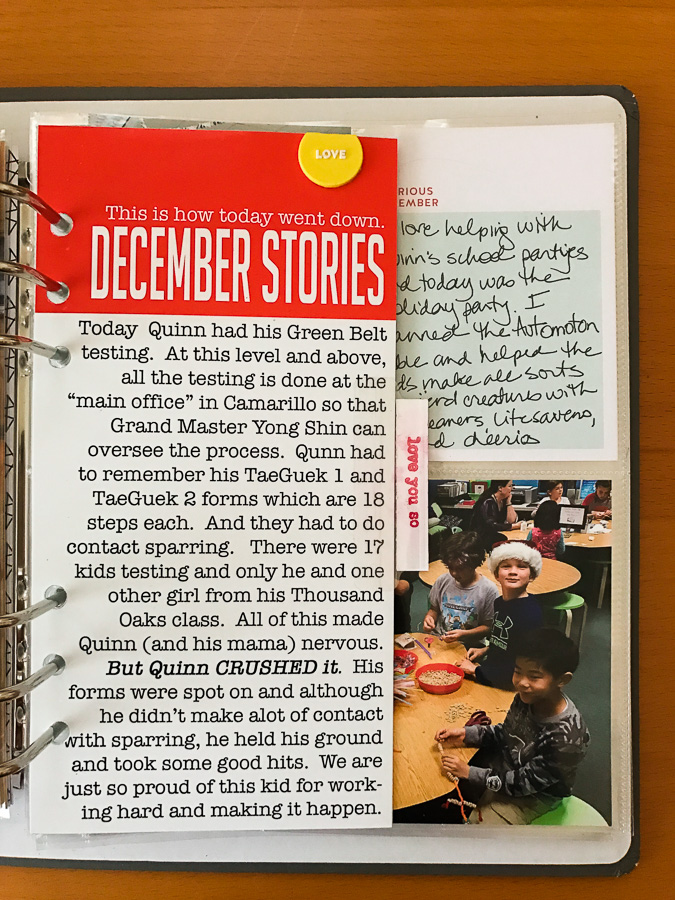 LOVE
This is how today went down.
DECEMBER STORIES
Today Quinn had his Green Belt
testing. At this level and above,
all the testing is done at the
“main office” in Camarillo so that
Grand Master Yong Shin can
oversee the process. Qunn had
to remember his TaeGuek 1 and
TaeGuek 2 forms which are 18
steps each. And they had to do
contact sparring. There were 17
kids testing and only he and one
other girl from his Thousand
Oaks class. All of this made
Quinn (and his mama) nervous.
But Quinn CRUSHED it. His
forms were spot on and although
he didn’t make alot of contact
with sparring, he held his ground
and took some good hits. We are
just so proud of this kid for work-
ing hard and making it happen.
love you so
RIOUS
EMBER
love helping with
uinn's school parties
d today was the
oliday party. I
anned the Automoton
ble and helped the
ds make all sorts
creatures with
eaners, lifesavers,
d cheerios